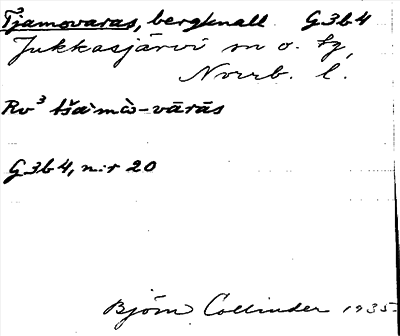 Tjamovaras, bergknall G 3b 4
Jukkasjärvi sn o. tg,
Norrb. l.
Rv³ tšàmὰ-vāràs
G 3b 4, nr 20
Björn Collinder 1935